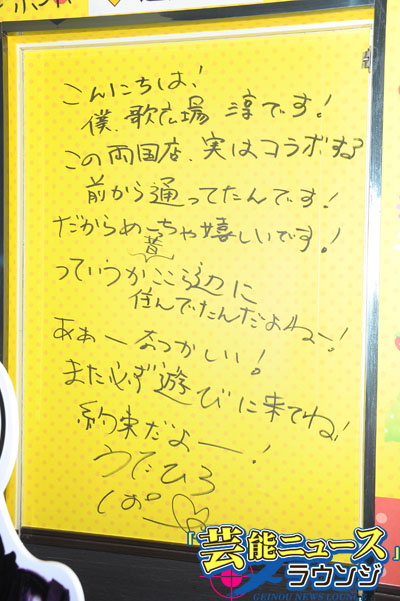 こんにちは!
僕、歌広場 淳です!
この両国店、実はコラボする
前から通ってたんです!
だからめっちゃ嬉しいです!
昔
っていうかここら辺に
住んでたんだよねー!
あぁーなつかしい!
また必ず遊びに来てね!
約束だよー!
うたひろ
「芸能ニュース
ラウンジ」
GEINOU NEWS LOUNGE